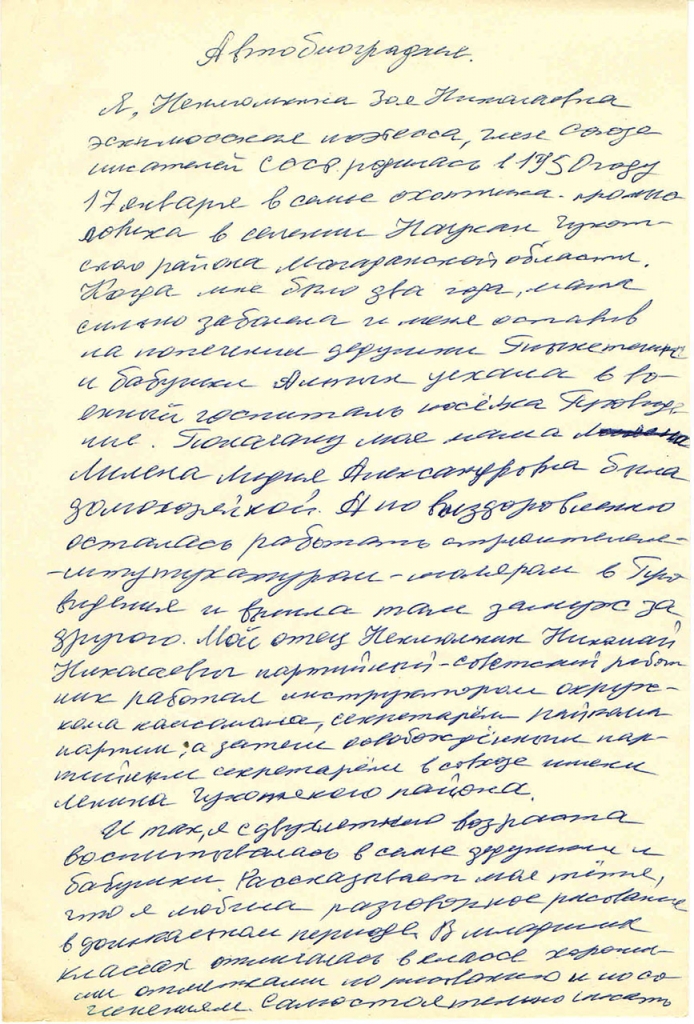 Автобиография.
Я, Ненлюмкина Зоя Николаевна
эскимосская поэтесса, член Союза
писателей СССР родилась в 1950 году
17 января в семье охотника - промыс
ловика в селении Наукан Чукот-
ского района Магаданской области.
Когда мне было два года, мама
сильно заболела и меня оставив
на попечении дедушки
и бабушки уехала в во-
енный госпиталь посёлка Провиде-
ние. Поначалу моя мама
Милена Лидия Александровна была
домохозяйкой. А по выздоровлению
осталась работать строителем-
-штукатуром-маляром в Про
видения и вышла там замуж за
другого. Мой отец Ненлюмкин Николай
Николаевич партийный-советский работ
ник работал инструктором окруж-
кома комсомола, секретарём райкома
партии, а затем освобождённым пар-
тийным секретарём в совхозе имени
Ленина Чукотского района.
И так, я с двухлетнего возраста
воспитывалась в семье дедушки и
бабушки. Рассказывает моя тётя,
что я любила разговорное рисование
в дошкольном периоде. В младших
классах отличалась в классе хороши-
ми отметками по рисованию и по со
чинениям. Самостоятельно писать